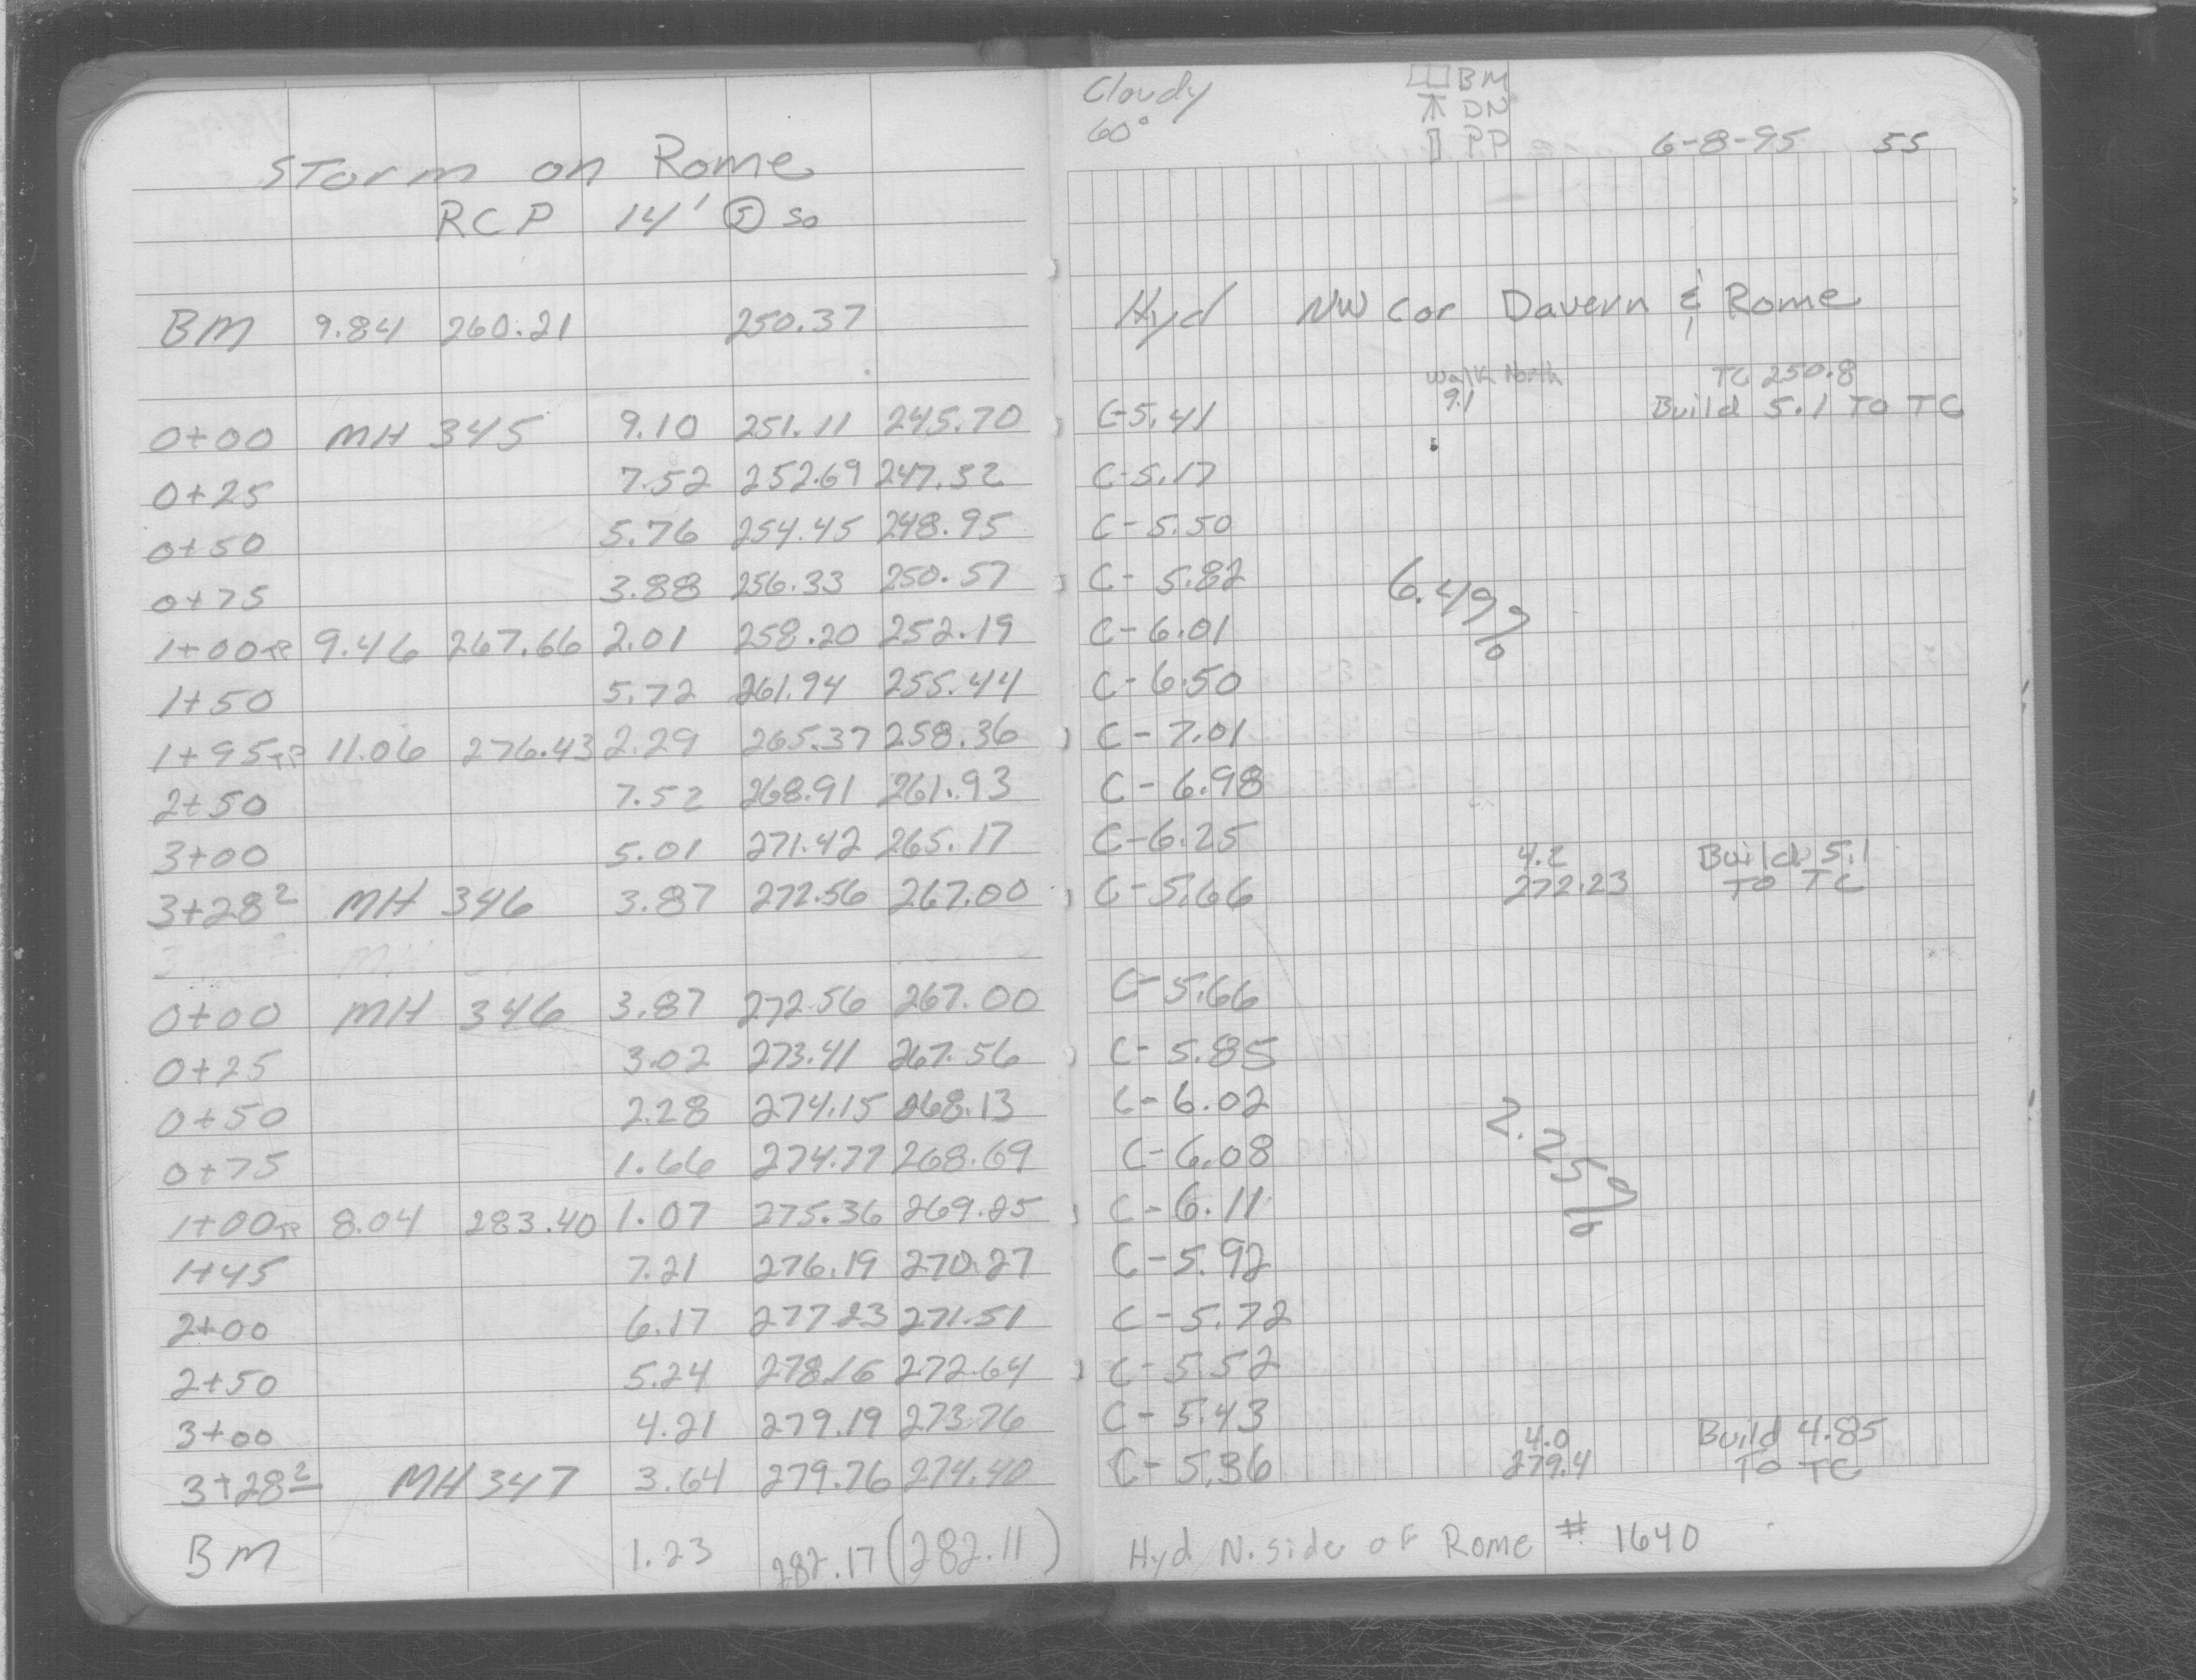 Storm on Rome
RCP 14' so
BM 9.84 260.21 250.37
0+00 MH 345 9.10 251.11 245.70
0+25 7.52 252.69 247.32
0+50 5.76 254.45 248.95
0+75 3.88 256.33 250.57
1+00 TP 9.46 267.66 2.01 258.20 252.19
1+50 5.72 261.94 255.44
1+95 TP 11.06 276.43 2.29 265.37 258.36
2+50 7.52 268.91 261.93
3+00 5.01 271.42 265.17
3+28² MH 346 3.87 272.56 267.00
0+00 MH 346 3.87 272.56 267.00
0+25 3.02 273.41 267.56
0+50 2.28 274.15 268.13
0+75 1.66 274.77 268.69
1+00 TP 8.04 283.40 1.07 275.36 269.25
1+45 7.21 276.19 270.27
2+00 6.17 277.23 271.51
2+50 5.24 278.16 272.64
3+00 4.21 279.19 273.76
3+28² MH 347 3.64 279.76 274.40
BM 1.23 282.17 (282.11)
Cloudy BM
60° DN
PP
6-8-95 55
Hyd NW cor Davern & Rome
Walk North TC 250.8
C-5.41 9.1 Build 5.1 TO TC
C-5.17
C-5.50
C-5.82
6.49%
C-6.01
C-6.50
C-7.01
C-6.98
C-6.25
4.2 Build 5.1
C-5.66 272.23 TO TC
C-5.66
C-5.85
C-6.02
2.25%
C-6.08
C-6.11
C-5.92
C-5.72
C-5.52
C-5.43
4.0 Build 4.85
C-5.36 279.4 TO TC
Hyd N. side of Rome # 1640